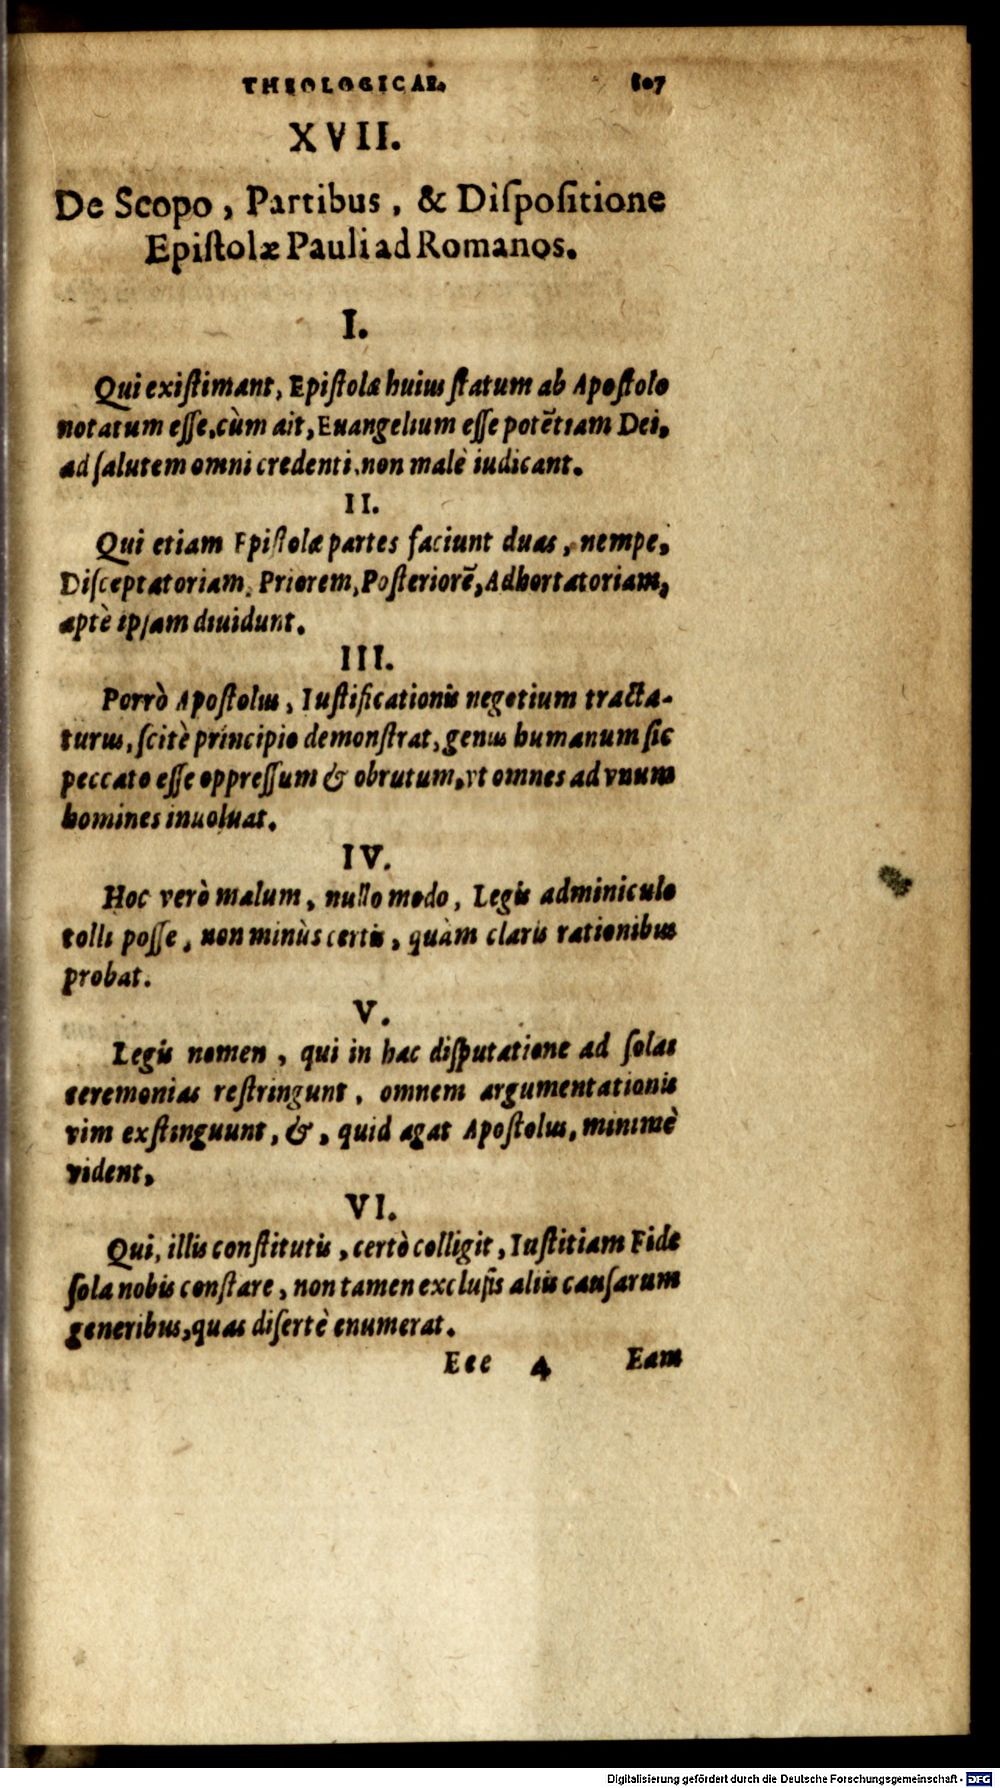 THEOLOGICAE. 807
XVII.
De Scopo, Partibus, & Diſpoſitione
Epiſtolæ Pauli ad Romanos.
I.
Qui exiſtimant, Epiſtolæ huius ſtatum ab Apoſtolo
notatum eſſe, cùm ait, Euangelium eſse potẽtiam Dei,
ad ſalutem omni credenti, non malè iudicant.
II.
Qui etiam Epiſtolæ partes faciunt duas, nempe,
Diſceptatoriam, Priorem, Poſteriorẽ, Adhortatoriam,
aptè ipſam diuidunt.
III.
Porrò Apoſtolus, Iuſtificationis negotium tracta-
turus, ſcitè principio demonſtrat, genus humanum ſic
peccato eſſe oppreſſum & obrutum, vt omnes ad vnum
homines inuoluat.
IV.
Hoc verò malum, nullo modo, Legis adminiculo
tolli poſſe, non minùs certis, quàm claris rationibus
probat.
V.
Legis nomen, qui in hac diſputatione ad ſolas
ceremonias reſtringunt, omnem argumentationis
vim exſtinguunt, &, quid agat Apoſtolus, minimè
vident.
VI.
Qui, illis conſtitutis, certò colligit, Iuſtitiam Fide
ſola nobis conſtare, non tamen excluſis aliis cauſarum
generibus, quas diſertè enumerat.
Eee 4 Eam
Digitalisierung gefördert durch die Deutsche Forschungsgemeinschaft - DFG